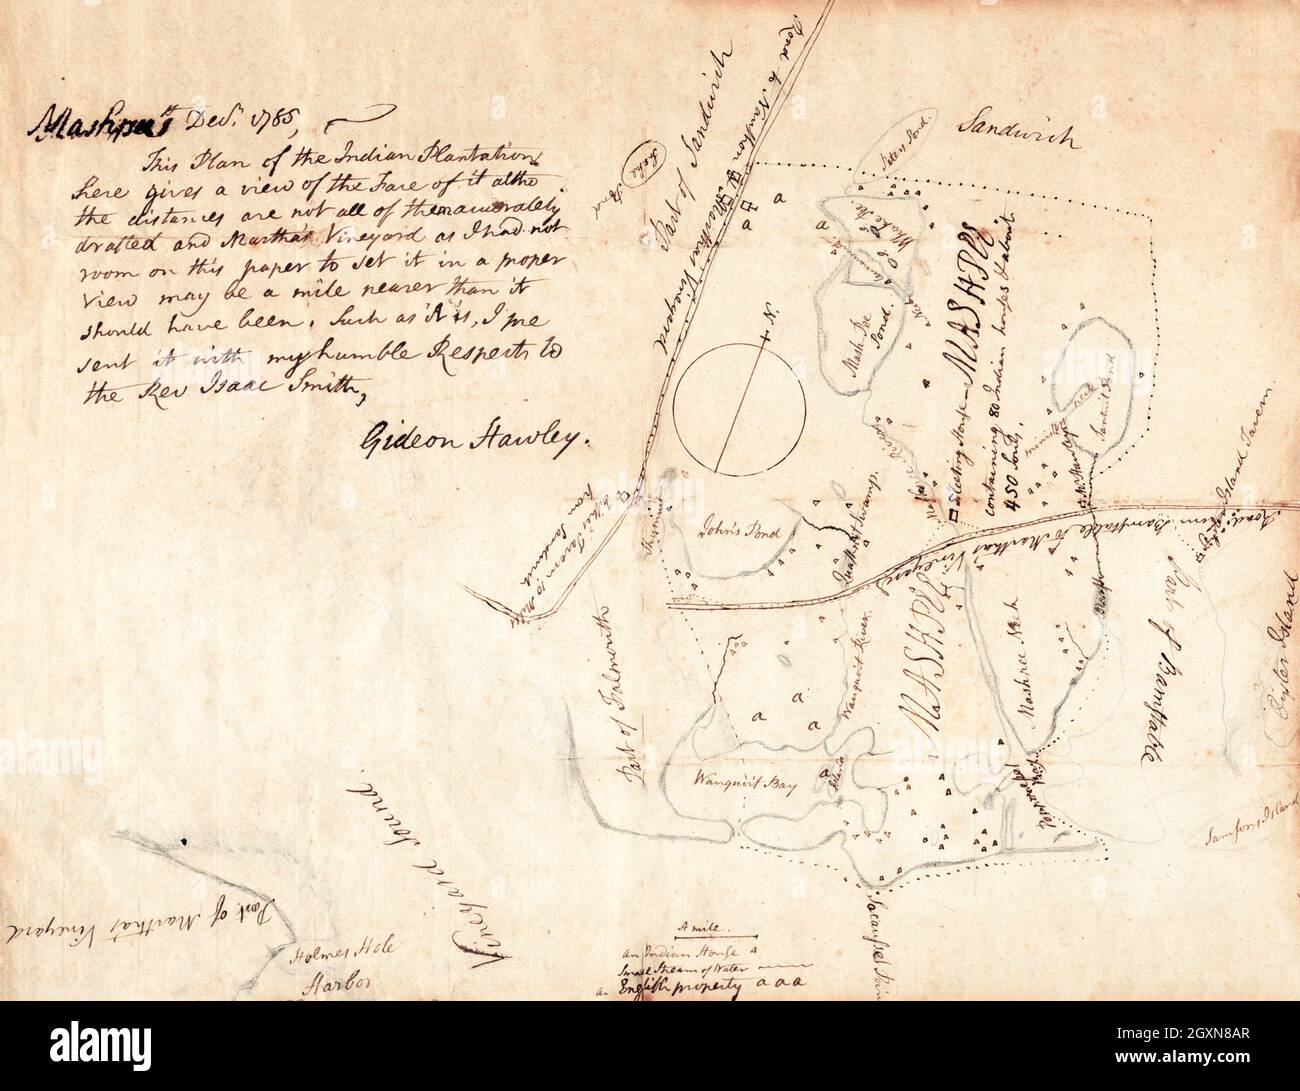 Mashpee Decr. 1785,
This Plan of the Indian Plantation
here gives a view of the Face of it altho
the distances are not all of them accurately
drafted and Martha's Vineyard as I had not
room on this paper to set it in a proper
view may be a mile nearer than it
should have been. Such as it is, I pre
sent it with my humble Respects to
the Rev Isaac Smith,
Gideon Hawley.
Road to
Part of Sandwich
Sandwich
N.
Mash Pee
Pond.
MASHPEE
containing 80 Indian houses &
450 Souls.
Meeting House
Santuit Pond
John's Pond
Quashnet Swamp.
Road from Barnstable to Martha's Vineyard
Part of Falmouth
Part of Barnstable
Oyster Island
MASHPEE
Mashpee Neck
Wanquoit River.
Wanquoit Bay
Island
Samsons Island
Vineyard Sound.
Part of Martha's Vineyard
Holmes Hole
Harbor
A mile.
an Indian House
Small Stream of Water
English property a a a
alamy
alamy
Image ID: 2GXN8AR
www.alamy.com